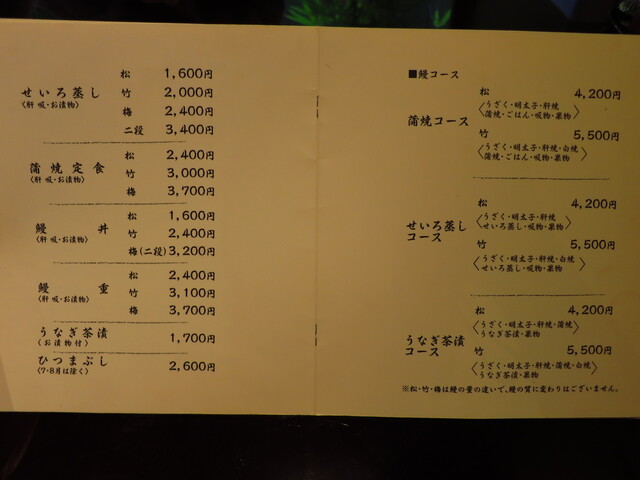 松 1,600円
せいろ蒸し 竹 2,000円
(肝吸・お漬物)
梅 2,400円
二段 3,400円
松 2,400円
蒲焼定食 竹 3,000円
(肝吸・お漬物)
梅 3,700円
松 1,600円
鰻丼 竹 2,400円
(肝吸・お漬物)
梅(二段) 3,200円
松 2,400円
鰻重 竹 3,100円
(肝吸・お漬物)
梅 3,700円
うなぎ茶漬 1,700円
(お漬物付)
ひつまぶし 2,600円
(7・8月は除く)
■鰻コース
松 4,200円
〈うざく・明太子・肝焼
蒲焼・ごはん・吸物・果物〉
蒲焼コース
竹 5,500円
〈うざく・明太子・肝焼・白焼
蒲焼・ごはん・吸物・果物〉
松 4,200円
〈うざく・明太子・肝焼
せいろ蒸し・吸物・果物〉
せいろ蒸し
コース
竹 5,500円
〈うざく・明太子・肝焼・白焼
せいろ蒸し・吸物・果物〉
松 4,200円
〈うざく・明太子・肝焼・蒲焼
うなぎ茶漬・果物〉
うなぎ茶漬
コース
竹 5,500円
〈うざく・明太子・肝焼・蒲焼・白焼
うなぎ茶漬・果物〉
※松・竹・梅は鰻の量の違いで、鰻の質に変わりはございません。